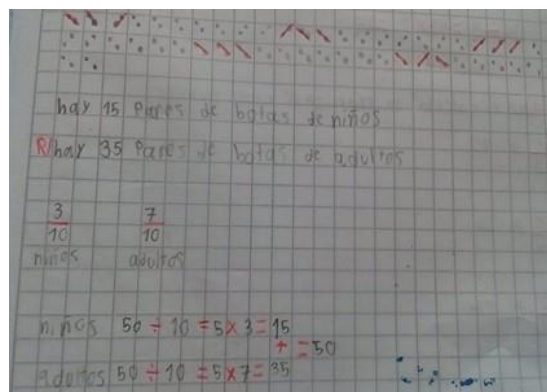 hay 15 Pares de botas de niños
R/hay 35 Pares de botas de adultos
3/10 7/10
niños adultos
niños 50 ÷ 10 = 5 x 3 = 15
+ = 50
adultos 50 ÷ 10 = 5 x 7 = 35